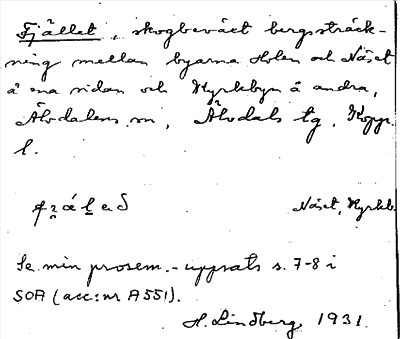 Fjället, skogbeväxt bergssträck-
ning mellan byarna Holen och Näset
å ena sidan och Kyrkbyn å andra,
Älvdalens sn, Älvdals tg, Kopp.
l.
Näset, Kyrkb.
Se min prosem.-uppsats s. 7-8 i
SOA (acc: nr A551).
H. Lindberg 1931.